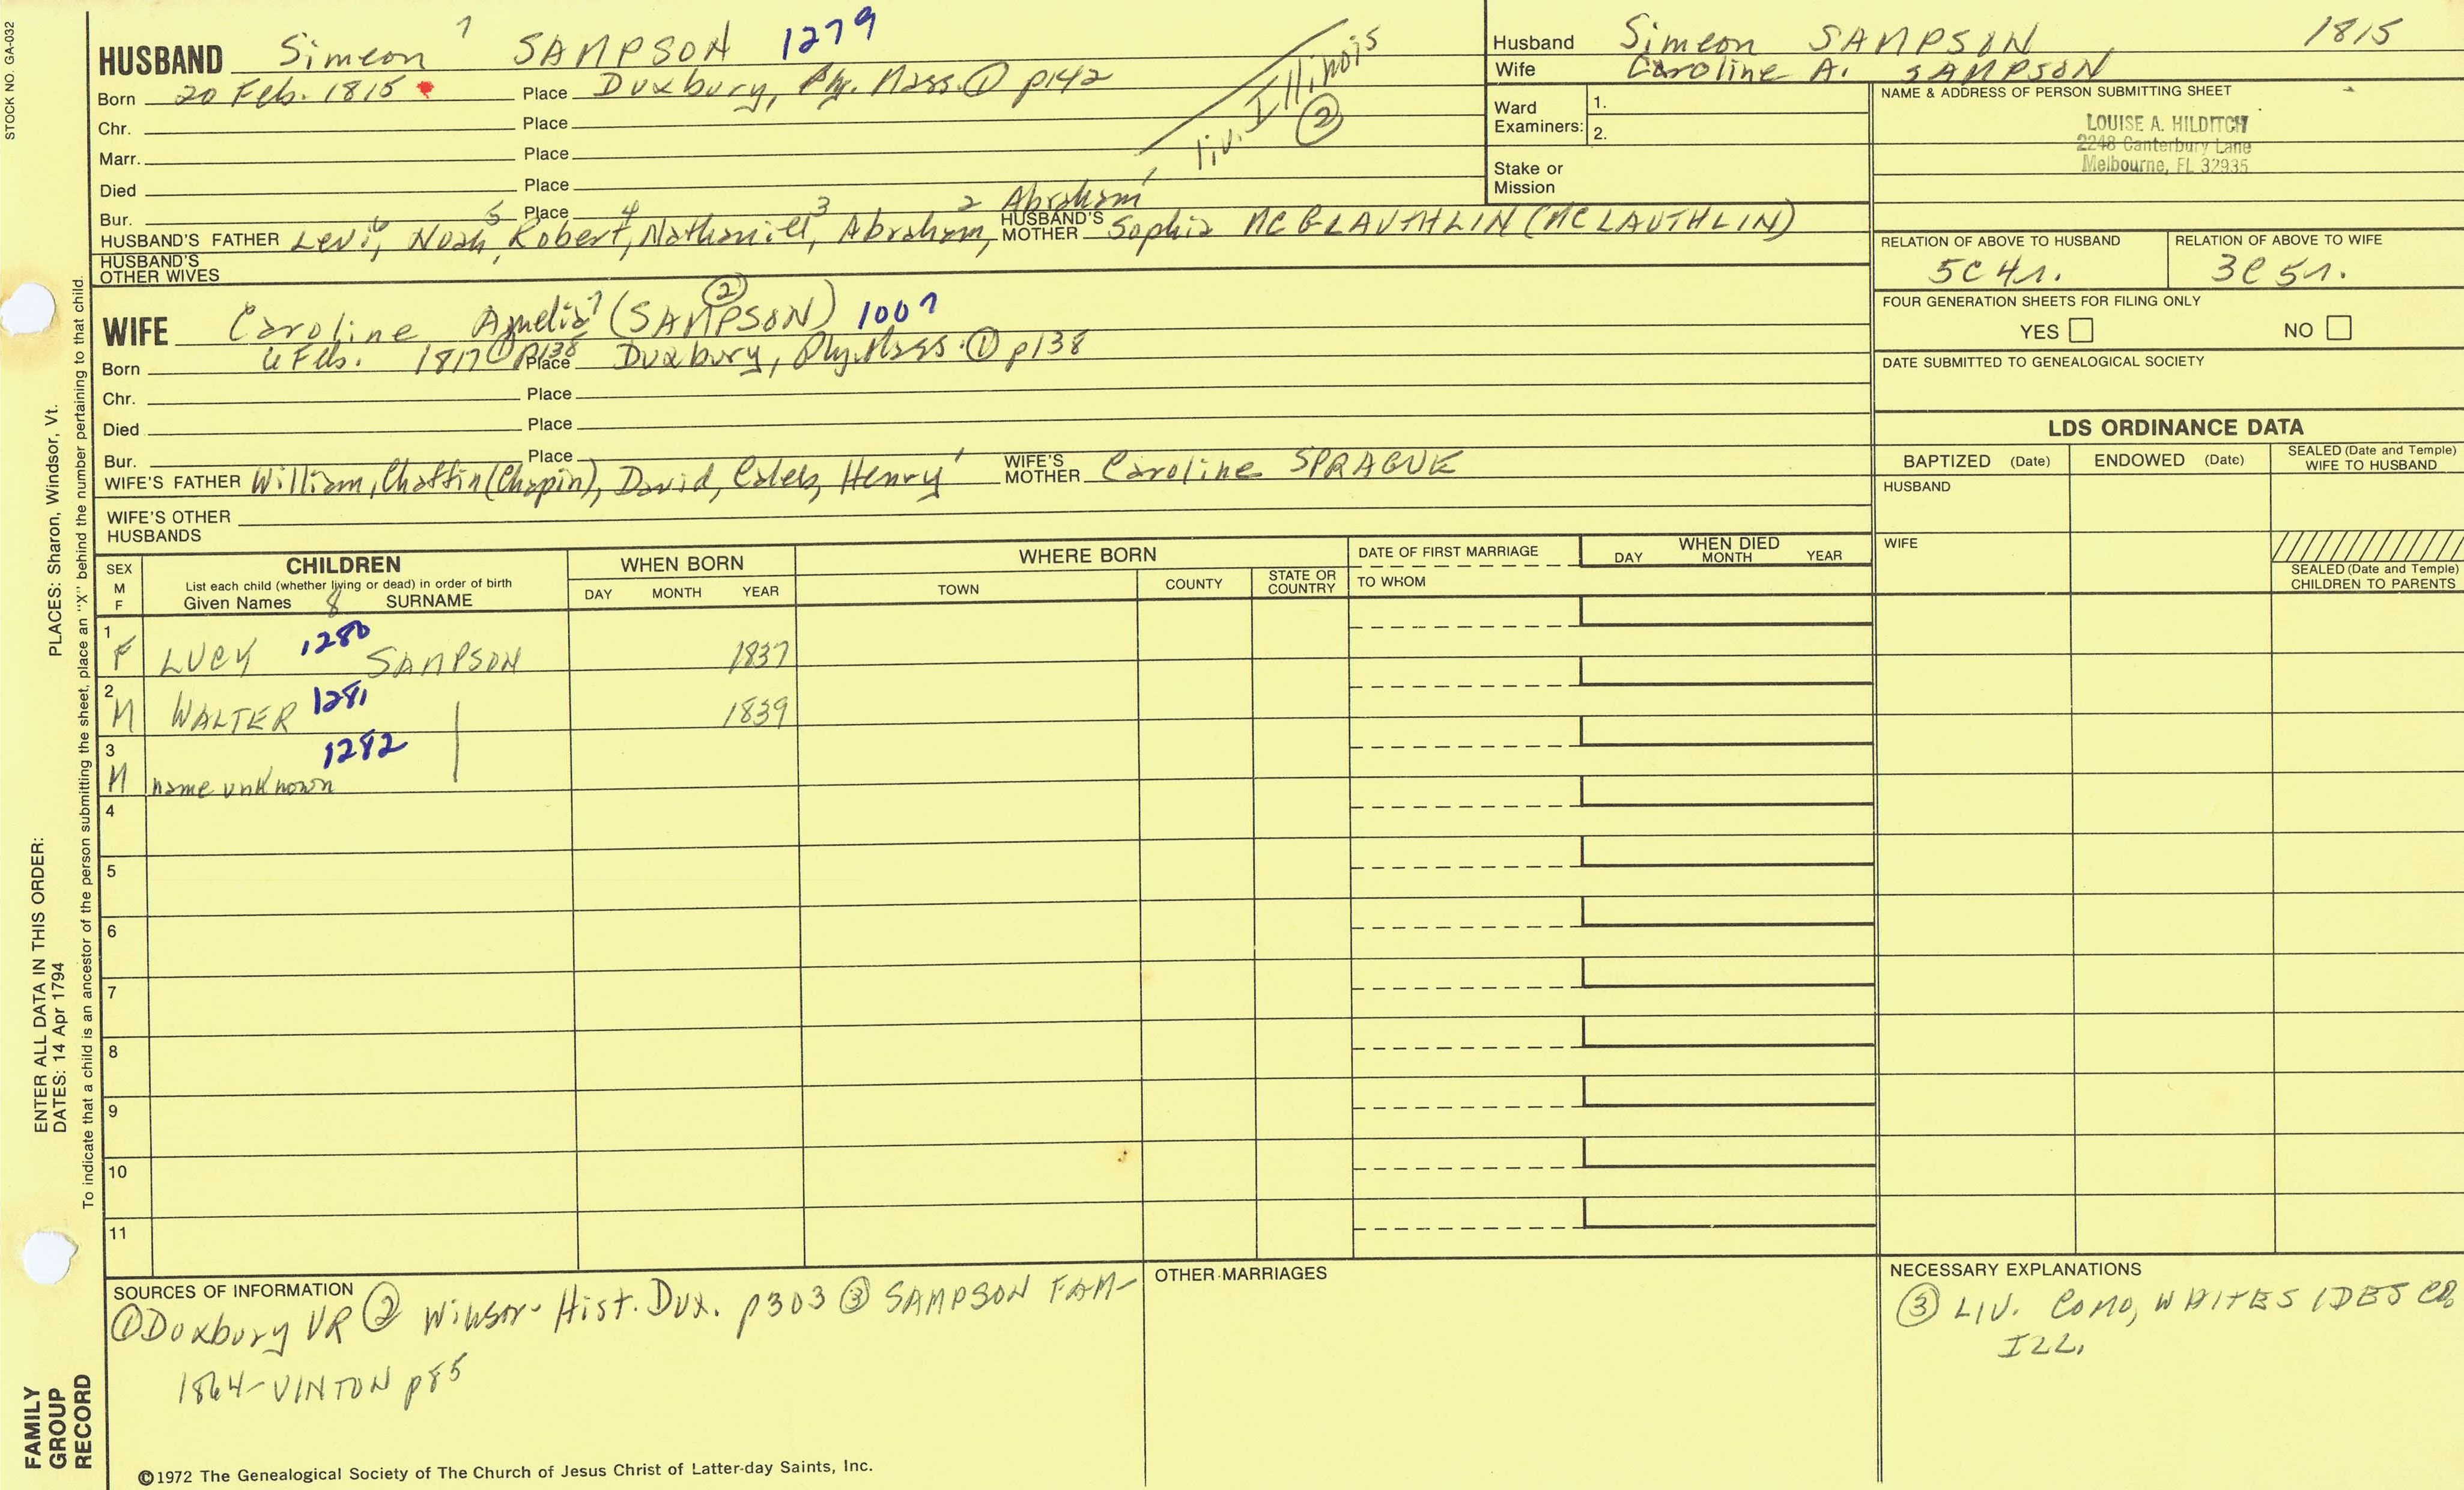 STOCK NO. GA-032
HUSBAND Simeon 7 SAMPSON 1279
Born 20 Feb. 1815 Place Duxbury, Ply. Mass. ① p142
Chr. Place
Marr. Place
Died Place
Bur. Place
liv. Illinois
②
Abraham 1
HUSBAND'S FATHER Levi 6, Noah 5, Robert 4, Nathaniell 3, Abraham 2, HUSBAND'S MOTHER Sophia MCGLAUTHLIN (MCLAUTHLIN)
HUSBAND'S
OTHER WIVES
②
WIFE Caroline Amelia 7 (SAMPSON) 1007
Born 6 Feb. 1817 ① p138 Place Duxbury, Ply. Mass. ① p138
Chr. Place
Died Place
Bur. Place
WIFE'S FATHER William, Chaffin (Chapin), David, Caleb, Henry 1 WIFE'S MOTHER Caroline SPRAGUE
WIFE'S OTHER
HUSBANDS
Husband Simeon SAMPSON, 1815
Wife Caroline A. SAMPSON
Ward
Examiners: 1.
2.
Stake or
Mission
NAME & ADDRESS OF PERSON SUBMITTING SHEET
LOUISE A. HILDITCH
2248 Canterbury Lane
Melbourne, FL 32935
RELATION OF ABOVE TO HUSBAND RELATION OF ABOVE TO WIFE
5C4r. 3C5r.
FOUR GENERATION SHEETS FOR FILING ONLY
YES NO
DATE SUBMITTED TO GENEALOGICAL SOCIETY
LDS ORDINANCE DATA
BAPTIZED (Date) ENDOWED (Date) SEALED (Date and Temple)
WIFE TO HUSBAND
HUSBAND
WIFE
SEALED (Date and Temple)
CHILDREN TO PARENTS
SEX
M
F
CHILDREN
List each child (whether living or dead) in order of birth
Given Names 8 SURNAME
WHEN BORN
DAY MONTH YEAR
WHERE BORN
TOWN COUNTY STATE OR COUNTRY
DATE OF FIRST MARRIAGE
TO WHOM
WHEN DIED
DAY MONTH YEAR
1 F LUCY 1280 SAMPSON 1837
2 M WALTER 1281 1839
3 M name unknown 1282
4
5
6
7
8
9
10
11
SOURCES OF INFORMATION
① Duxbury VR ② Winsor- Hist. Dux. p303 ③ SAMPSON FAM-
1864-VINTON p85
OTHER MARRIAGES
NECESSARY EXPLANATIONS
③ LIV. COMO, WHITESIDES CO,
ILL.
©1972 The Genealogical Society of The Church of Jesus Christ of Latter-day Saints, Inc.
FAMILY
GROUP
RECORD
ENTER ALL DATA IN THIS ORDER:
DATES: 14 Apr 1794
PLACES: Sharon, Windsor, Vt.
To indicate that a child is an ancestor of the person submitting the sheet, place an "X" behind the number pertaining to that child.